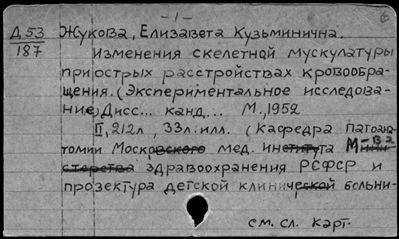 -1-
Д 53
187
Жукова, Елизавета Кузьминична.
Изменения скелетной мускулатуры
при острых расстройствах кровообра-
щения. (Экспериментальное исследова-
ние) Дисс... канд... М., 1952
II, 212л, 33л. илл. (Кафедра патоана
томии Московского мед. института М-ва
здравоохранения РСФСР и
прозектура детской клинической больни-
см. сл. карт.